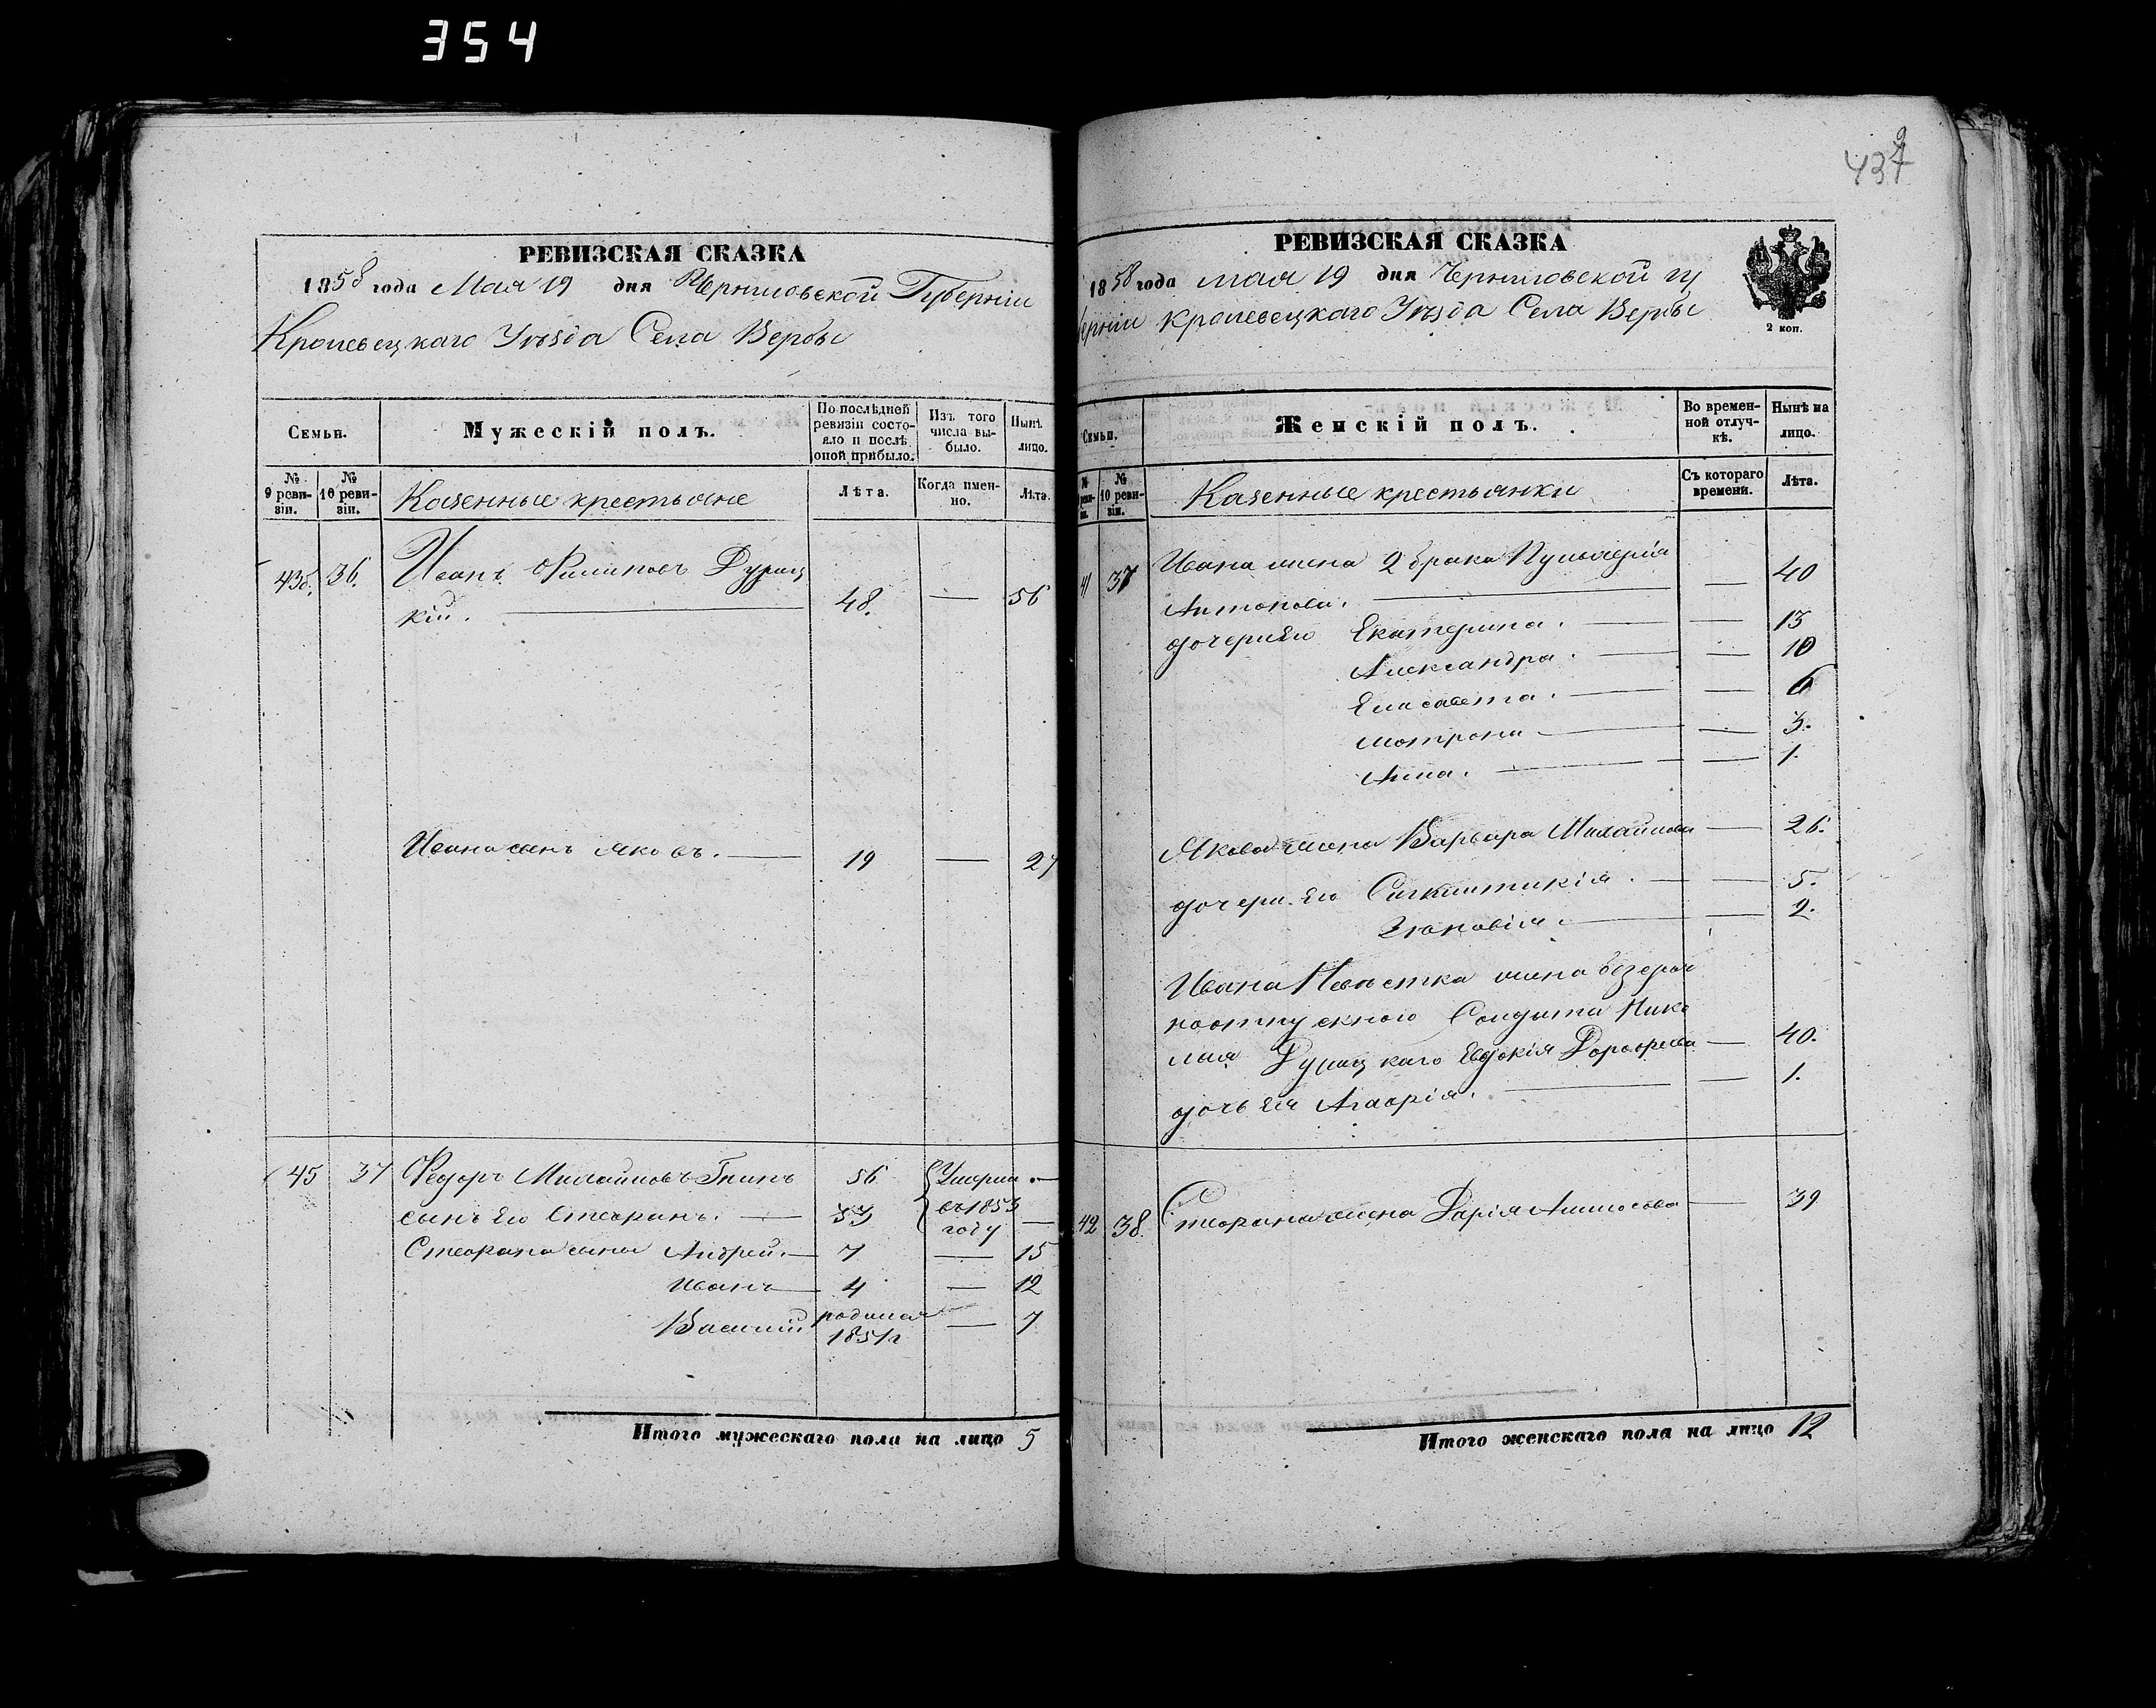 354
РЕВИЗСКАЯ СКАЗКА
1858 года Мая 19 дня Черниговской Губерніи
Кролевецкаго Уѣзда Села Вербы
Семьи.
Мужескій полъ.
По послѣдней ревизіи состояло и послѣ оной прибыло.
Изъ того числа выбыло.
Нынѣ лицо.
№ 9 ревизіи.
№ 10 ревизіи.
Казенные крестьяне
Лѣта.
Когда именно.
Лѣта.
43б. 36. Иванъ Филиповъ Дуриц
кій. 48. — 56
Ивана сынъ Яковъ. — 19 — 27
45 37 Федоръ Михайловъ Гнипъ 56 Умерли —
сынъ его Стефанъ. — 33 въ 1853 году —
Стефана сыны Андрей. — 7 — 15
Иванъ — 4 — 12
Василій родился 1851г — 7
Итого мужескаго пола на лицо 5
437
9
РЕВИЗСКАЯ СКАЗКА
1858 года мая 19 дня Черниговской гу
берніи Кролевецкаго Уѣзда Села Вербы
2 коп.
Семьи.
Женскій полъ.
Во временной отлучкѣ.
Нынѣ на лицо.
№ 10 ревизіи.
Казенные крестьянки
Съ котораго времени.
Лѣта.
41 37 Ивана жена 2 брака Пульхерія
Антонова. — — 40
дочери его Екатерина. — — 13
Александра. — — 10
Елисавета. — — 6
Мотрона — — 3.
Анна. — — 1.
Якова жена Варвара Михайлова — 26.
дочери его Синклитикія. — — 5.
Зиновія. — — 2.
Ивана Невѣстка жена безсроч
ноотпускного Солдата Нико
лая Дурицкаго Евдокія Дорофеева — 40.
дочь ея Агафія. — — 1.
42 38. Стефана жена Дарія — 39
Итого женскаго пола на лицо 12